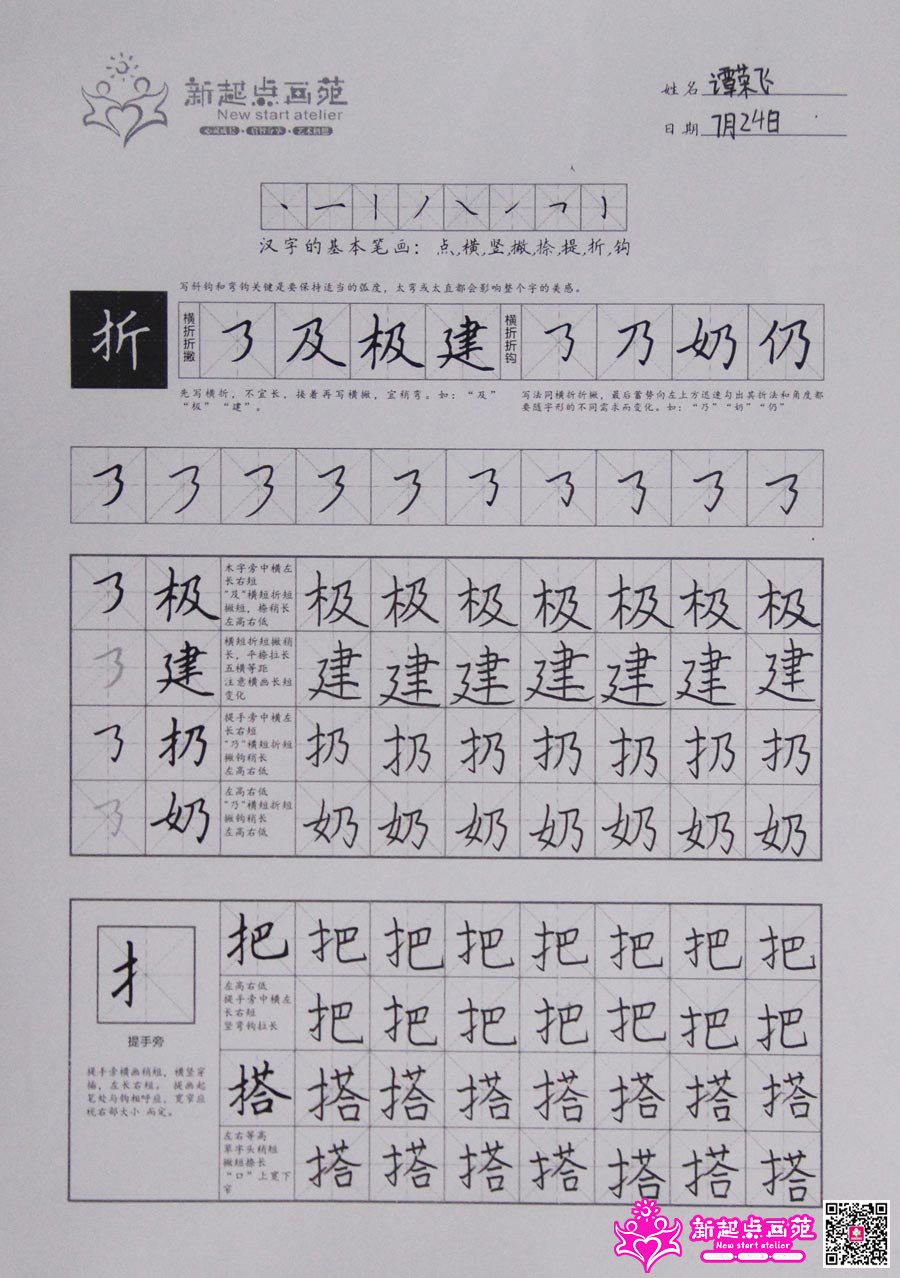 新起点画苑
New start atelier
姓名 谭荣飞
日期 7月24日
汉字的基本笔画：点,横,竖,撇,捺,提,折,钩
写斜钩和弯钩关键是要保持适当的弧度，太弯或太直都会影响整个字的美感。
折
横折折撇 ㇋ 及 极 建
横折折钩 ㇡ 乃 奶 仍
先写横折，不宜长，接着再写横撇，宜稍弯。如：“及”
“极”“建”。
写法同横折折撇，最后蓄势向左上方迅速勾出其折法和角度都
要随字形的不同需求而变化。如：“乃”“奶”“仍”
极
木字旁中横左
长右短
“及”横短折短
撇短，捺稍长
左高右低
极 极 极 极 极 极 极
建
横短折短撇稍
长，平捺拉长
五横等距
注意横画长短
变化
建 建 建 建 建 建 建
扔
提手旁中横左
长右短
“乃”横短折短
撇钩稍长
左高右低
扔 扔 扔 扔 扔 扔 扔
奶
左高右低
“乃”横短折短
撇钩稍长
左高右低
奶 奶 奶 奶 奶 奶 奶
扌
提手旁
提手旁横画稍短，横竖穿
插，左长右短。提画起
笔处与钩相呼应，宽窄应
视右部大小 而定。
把 把 把 把 把 把 把 把
左高右低
提手旁中横左
长右短
竖弯钩拉长
把 把 把 把 把 把 把
搭 搭 搭 搭 搭 搭 搭 搭
左右等高
草字头稍短
撇短捺长
“口”上宽下
窄
搭 搭 搭 搭 搭 搭 搭
新起点画苑
New start atelier